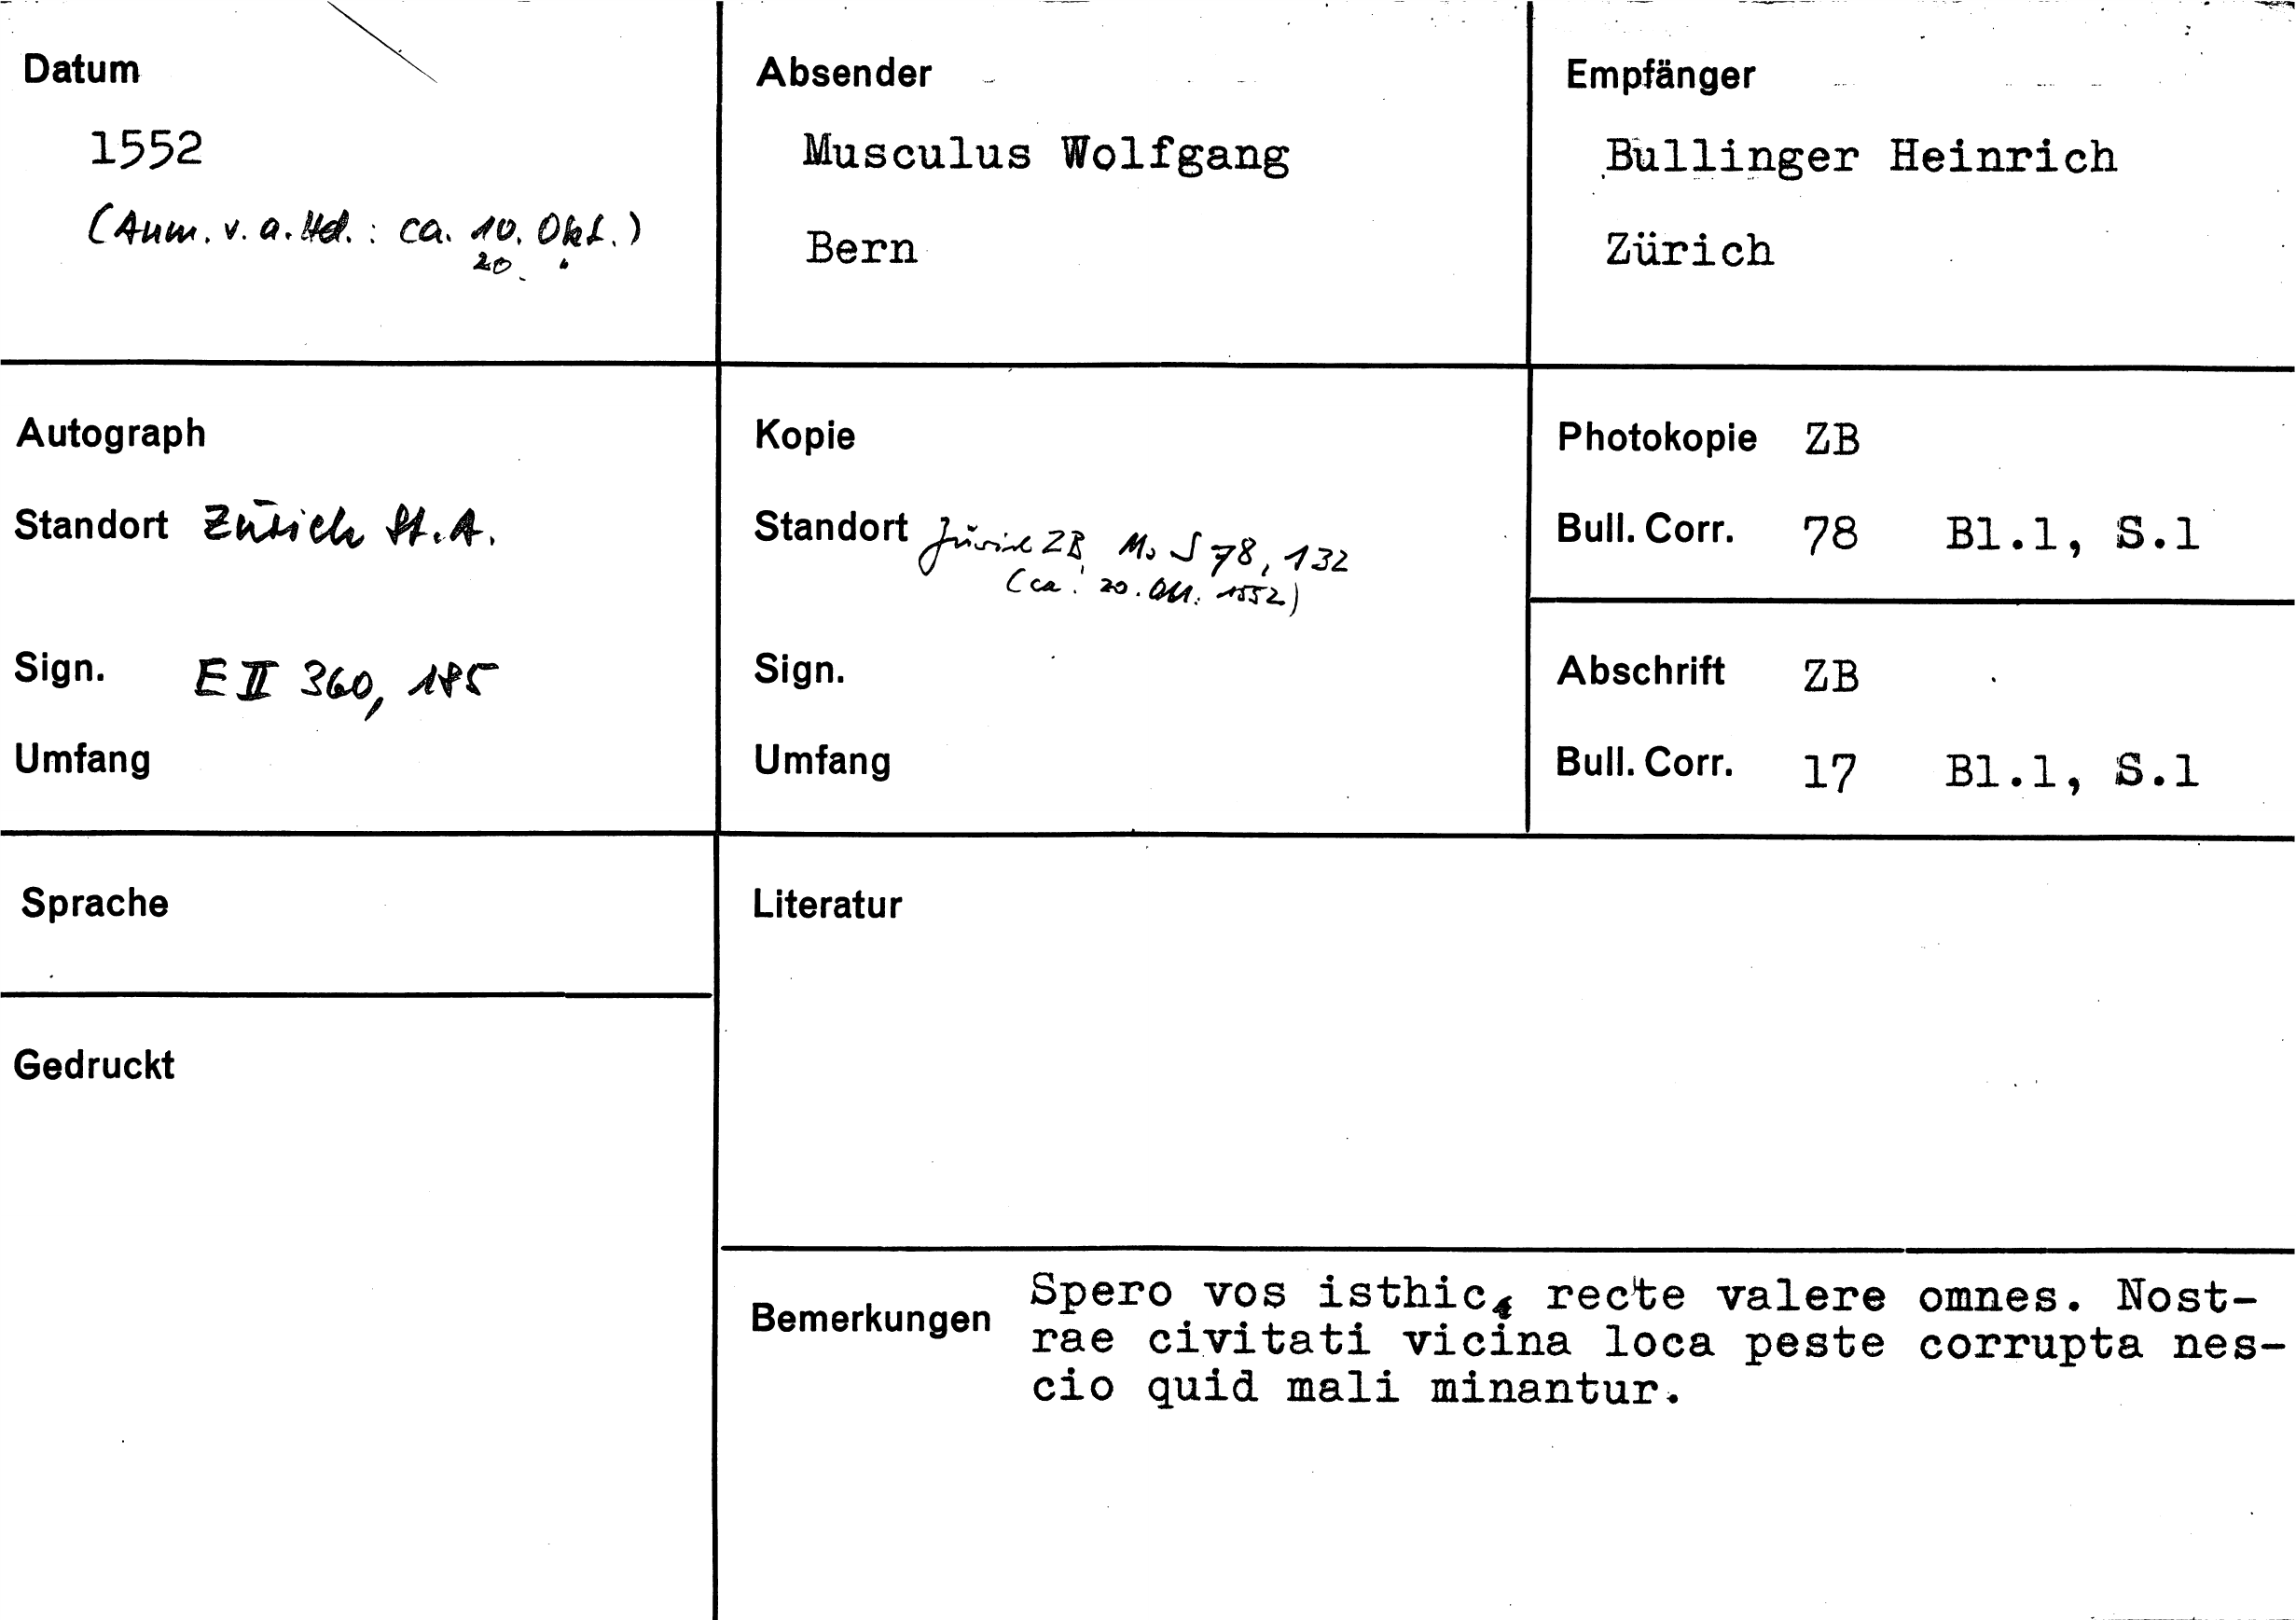 Datum
1552
(Anm. v. a. Hd. : ca. 10. Okt.)
20. "
Absender
Musculus Wolfgang
Bern
Empfänger
Bullinger Heinrich
Zürich
Autograph
Standort Zürich St.A.
Sign. E II 360, 185
Umfang
Kopie
Standort Zürich ZB Ms S 78, 132
(ca. 20. Okt. 1552)
Sign.
Umfang
Photokopie ZB
Bull. Corr. 78 Bl.1, S.1
Abschrift ZB
Bull. Corr. 17 Bl.1, S.1
Sprache
Gedruckt
Literatur
Bemerkungen
Spero vos isthic, recte valere omnes. Nost-
rae civitati vicina loca peste corrupta nes-
cio quid mali minantur.